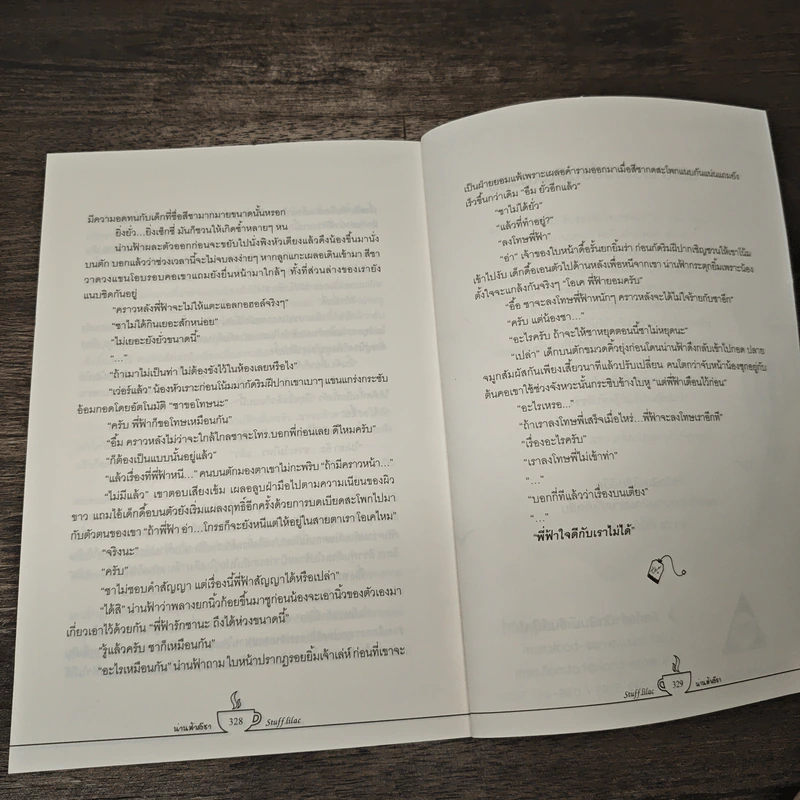 มีความอดทนกับเด็กที่ชื่อสีชามากมายขนาดนั้นหรอก
ยิ่งยั่ว...ยิ่งเซ็กซี่ มันก็ชวนให้เกิดซ้ำหลายๆ หน
น่านฟ้าผละตัวออกก่อนจะขยับไปนั่งพิงหัวเตียงแล้วดึงน้องขึ้นมานั่ง
บนตัก บอกแล้วว่าช่วงเวลานี้จะไม่จบลงง่ายๆ หากลูกแกะเผลอเดินเข้ามา สีชา
วาดวงแขนโอบรอบคอเขาแถมยังยื่นหน้ามาใกล้ๆ ทั้งที่ส่วนล่างของเรายัง
แนบชิดกันอยู่
“คราวหลังพี่ฟ้าจะไม่ให้แตะแอลกอฮอล์จริงๆ”
“ชาไม่ได้กินเยอะสักหน่อย”
“ไม่เยอะยังยั่วขนาดนี้”
“...”
“ถ้าเมาไม่เป็นท่า ไม่ต้องขังไว้ในห้องเลยหรือไง”
“เว่อร์แล้ว” น้องหัวเราะก่อนโน้มมากัดริมฝีปากเขาเบาๆ แขนแกร่งกระชับ
อ้อมกอดโดยอัตโนมัติ “ชาขอโทษนะ”
“ครับ พี่ฟ้าก็ขอโทษเหมือนกัน”
“อื้ม คราวหลังไม่ว่าจะใกล้ไกลชาจะโทร.บอกพี่ก่อนเลย ดีไหมครับ”
“ก็ต้องเป็นแบบนั้นอยู่แล้ว”
“แล้วเรื่องที่พี่ฟ้าหนี...” คนบนตักมองตาเขาไม่กะพริบ “ถ้ามีคราวหน้า...”
“ไม่มีแล้ว” เขาตอบเสียงเข้ม เผลอลูบฝ่ามือไปตามความเนียนของผิว
ขาว แถมไอ้เด็กดื้อบนตัวยังเริ่มแผลงฤทธิ์อีกครั้งด้วยการบดเบียดสะโพกไปมา
กับตัวตนของเขา “ถ้าพี่ฟ้า อ่า...โกรธก็จะยังหนีแต่ให้อยู่ในสายตาเรา โอเคไหม”
“จริงนะ”
“ครับ”
“ชาไม่ชอบคำสัญญา แต่เรื่องนี้พี่ฟ้าสัญญาได้หรือเปล่า”
“ได้สิ” น่านฟ้าว่าพลางยกนิ้วก้อยขึ้นมาชูก่อนน้องจะเอานิ้วของตัวเองมา
เกี่ยวเอาไว้ด้วยกัน “พี่ฟ้ารักชานะ ถึงได้ห่วงขนาดนี้”
“รู้แล้วครับ ชาก็เหมือนกัน”
“อะไรเหมือนกัน” น่านฟ้าถาม ใบหน้าปรากฏรอยยิ้มเจ้าเล่ห์ ก่อนที่เขาจะ
น่านฟ้าสีชา 328 Stuff.lilac
เป็นฝ่ายยอมแพ้เพราะเผลอคำรามออกมาเมื่อสีชากดสะโพกแนบกันแน่นแถมยัง
เร็วขึ้นกว่าเดิม “อืม ยั่วอีกแล้ว”
“ชาไม่ได้ยั่ว”
“แล้วที่ทำอยู่?”
“ลงโทษพี่ฟ้า”
“อ่า” เจ้าของใบหน้าดื้อรั้นยกยิ้มร่า ก่อนกัดริมฝีปากเชิญชวนให้เขาโน้ม
เข้าไปงับ เด็กดื้อเอนตัวไปด้านหลังเพื่อหนีจากเขา น่านฟ้ากระตุกยิ้มเพราะน้อง
ตั้งใจจะแกล้งกันจริงๆ “โอเค พี่ฟ้ายอมครับ”
“อื้อ ชาจะลงโทษพี่ฟ้าหนักๆ คราวหลังจะได้ไม่ใจร้ายกับชาอีก”
“ครับ แต่น้องชา...”
“อะไรครับ ถ้าจะให้ชาหยุดตอนนี้ชาไม่หยุดนะ”
“เปล่า” เด็กบนตักขมวดคิ้วยุ่งก่อนโดนน่านฟ้าดึงกลับเข้าไปกอด ปลาย
จมูกสัมผัสกันเพียงเสี้ยววินาทีแล้วปรับเปลี่ยน คนโตกว่าจับหน้าน้องซุกอยู่กับ
ต้นคอเขาใช้ช่วงจังหวะนั้นกระซิบข้างใบหู “แต่พี่ฟ้าเตือนไว้ก่อน”
“อะไรเหรอ...”
“ถ้าเราลงโทษพี่เสร็จเมื่อไหร่...พี่ฟ้าจะลงโทษเราอีกที”
“เรื่องอะไรครับ”
“เราลงโทษพี่ไม่เข้าท่า”
“...”
“บอกกี่ทีแล้วว่าเรื่องบนเตียง”
“...”
“พี่ฟ้าใจดีกับเราไม่ได้”
Stuff.lilac 329 น่านฟ้าสีชา